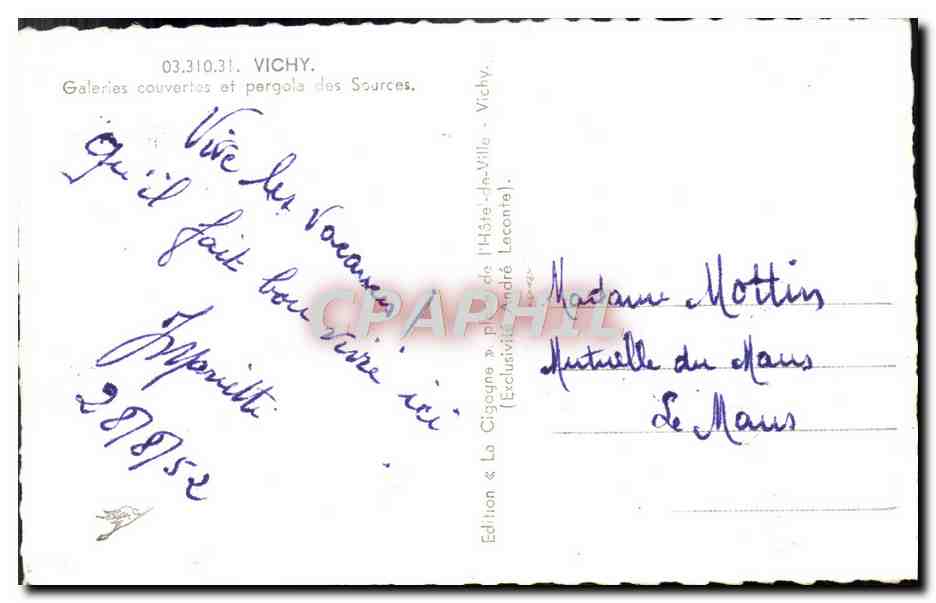 03.310.31. VICHY.
Galeries couvertes et pergola des Sources.
Vive les vacances !
Qu'il fait bon vivre ici
28/8/52
Edition « La Cigogne » pl. de l'Hôtel-de-Ville - Vichy.
(Exclusivité André Leconte).
Madame Mottin
Mutuelle du Mans
Le Mans
CPAPHIL